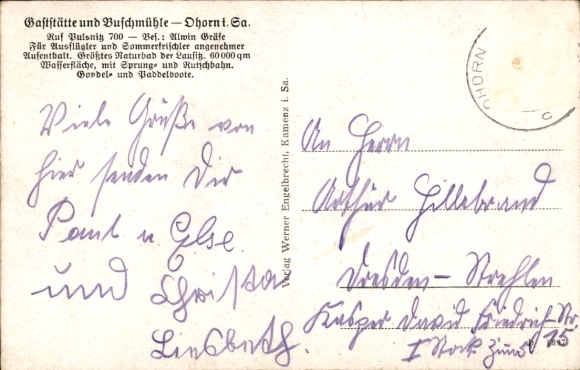 Gaststätte und Buschmühle — Ohorn i. Sa.
Ruf Pulsnitz 700 — Bes.: Alwin Gräfe
Für Ausflügler und Sommerfrischler angenehmer
Aufenthalt. Größtes Naturbad der Lausitz. 60000 qm
Wasserfläche, mit Sprung- und Rutschbahn.
Gondel- und Paddelboote.
Viele Grüße von
hier senden Dir
Paul u Else.
und Christa
Liesbeth.
Verlag Werner Engelbrecht, Kamenz i. Sa.
OHORN
An Herrn
Arthur Hillebrand
Dresden – Strehlen
Kasper David Friedrich-Str
15
I Stock